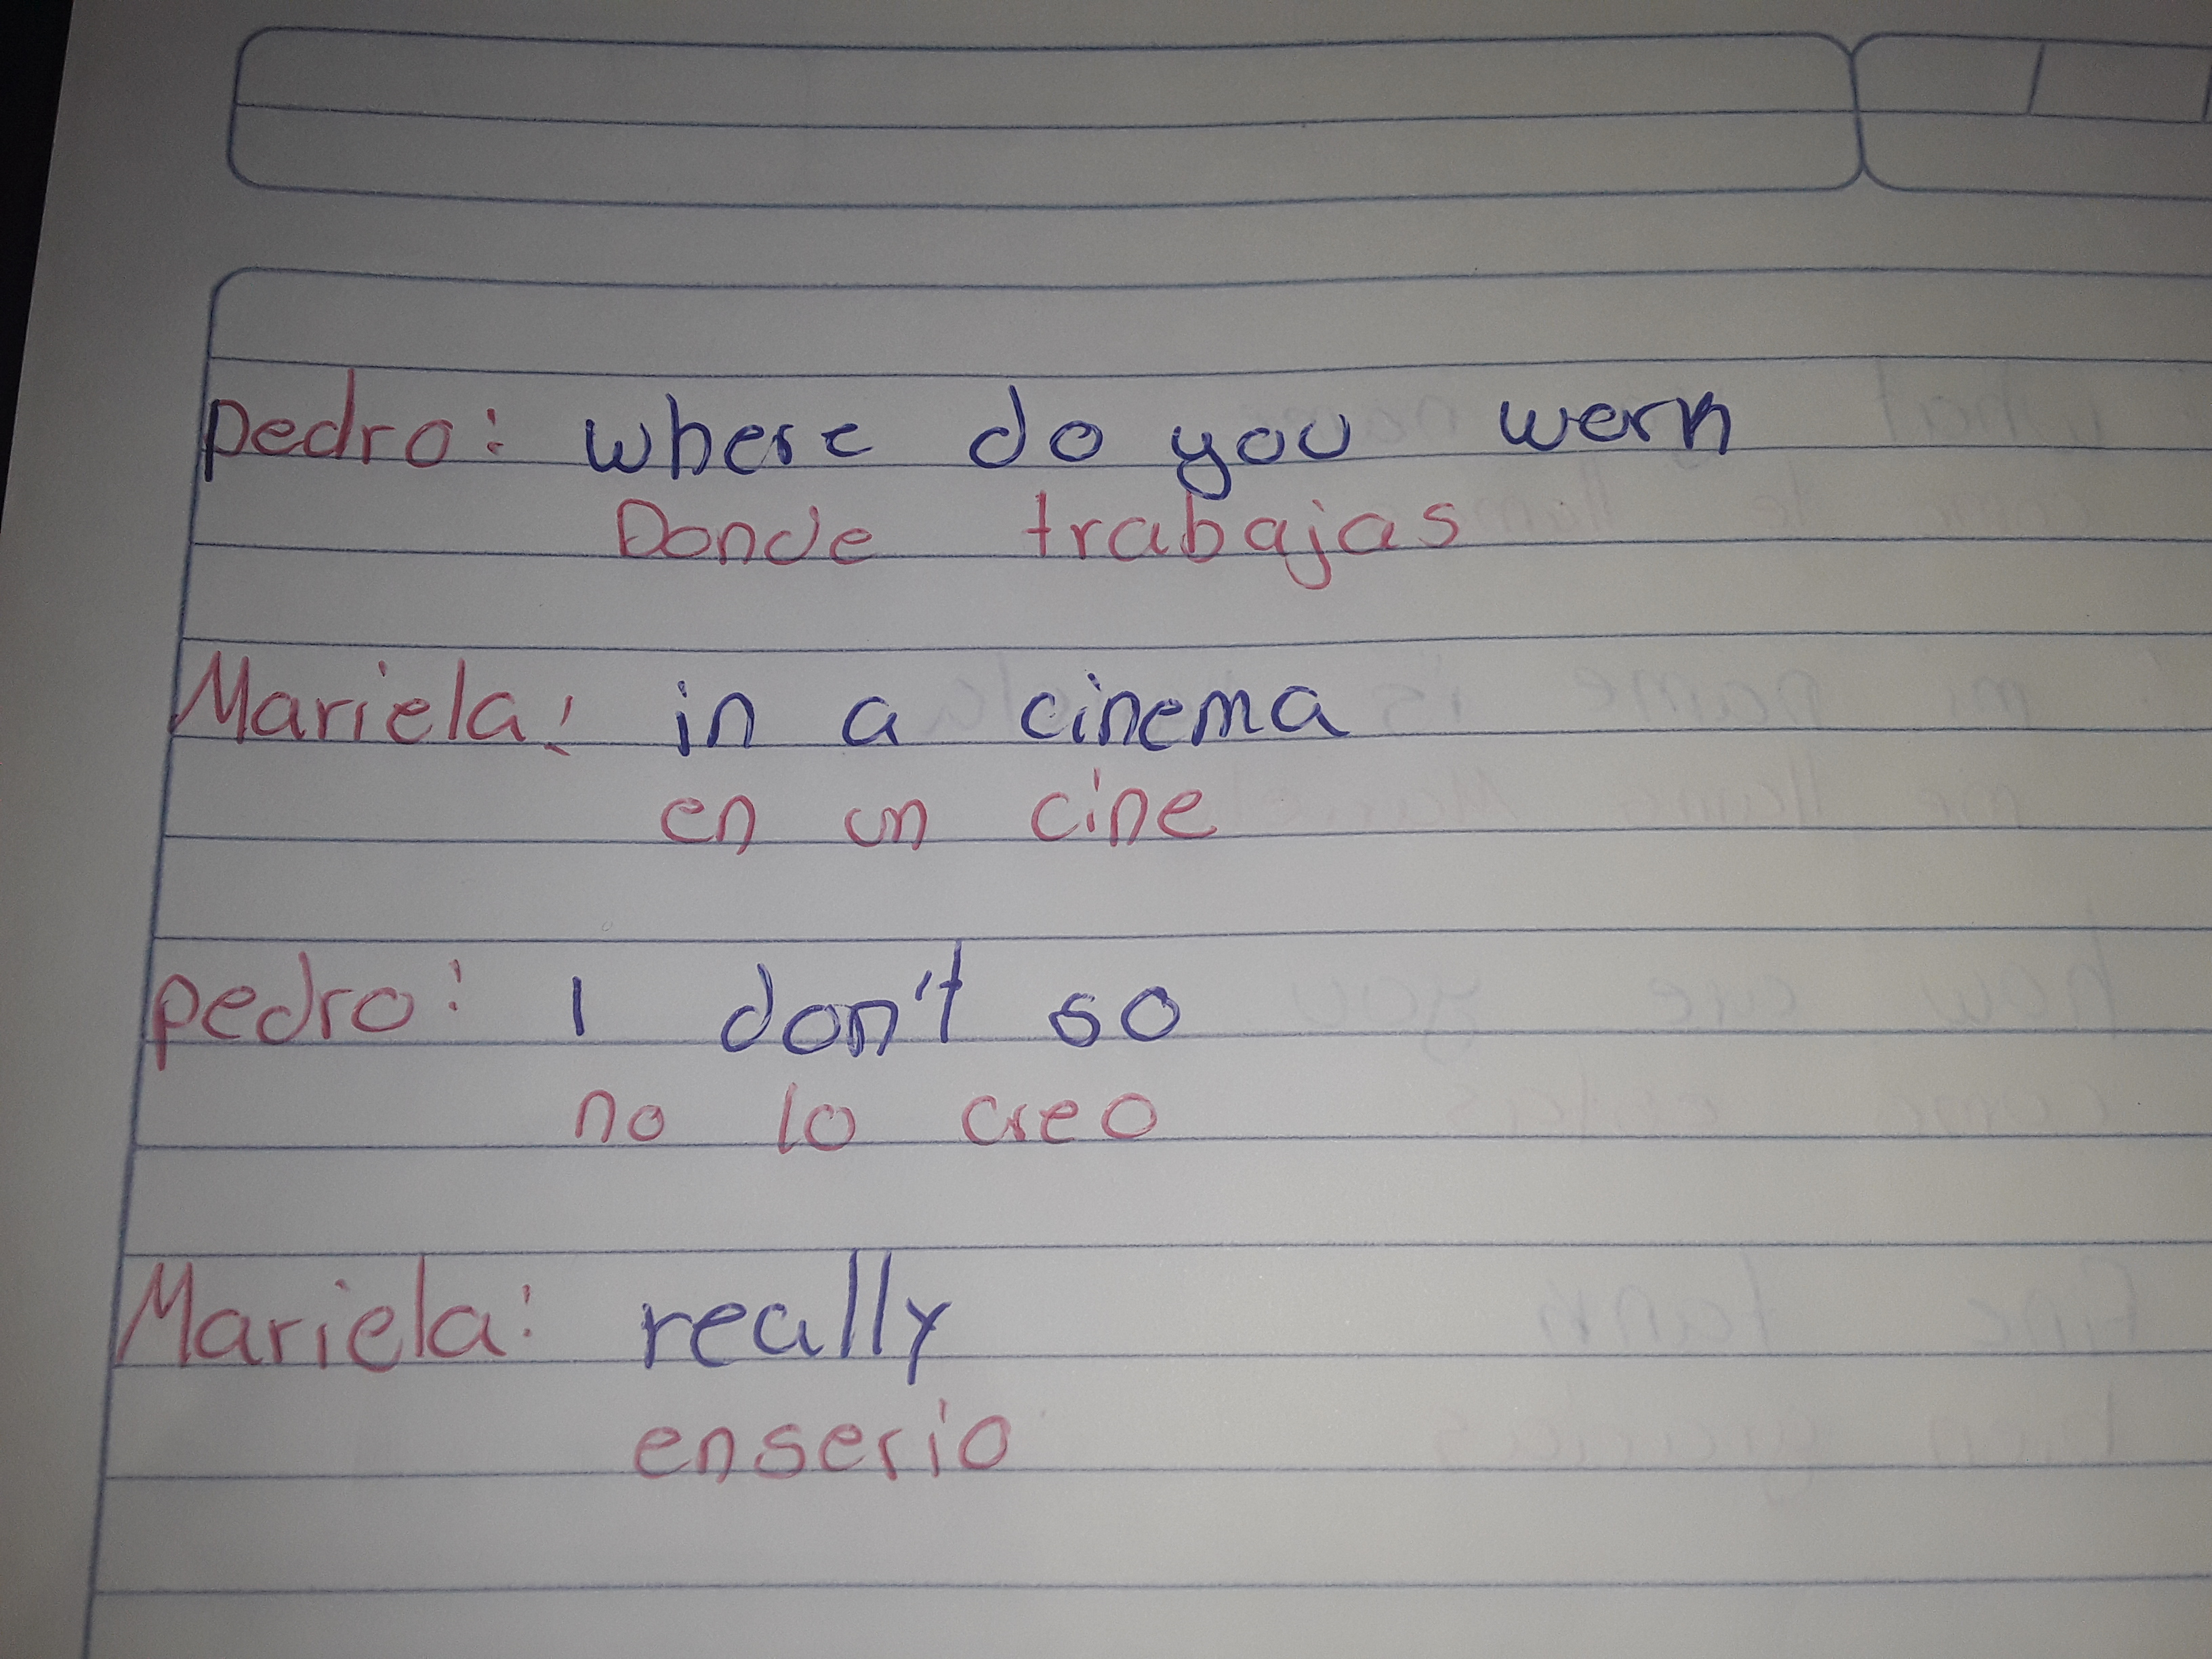 pedro: where do you wern
Donde trabajas
Mariela: in a cinema
en un cine
pedro: I don't so
no lo creo
Mariela: really
enserio